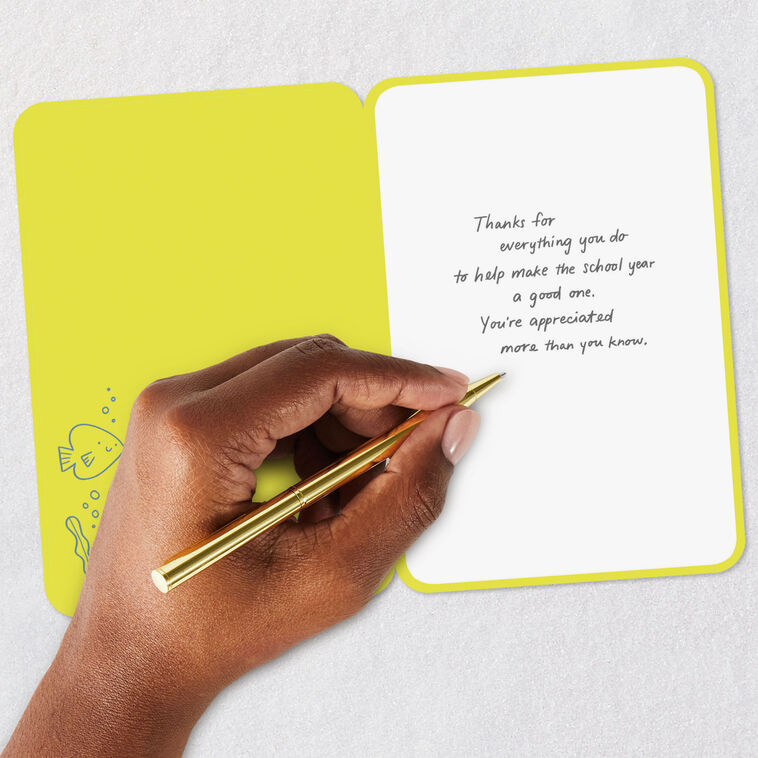 Thanks for
everything you do
to help make the school year
a good one.
You're appreciated
more than you know.